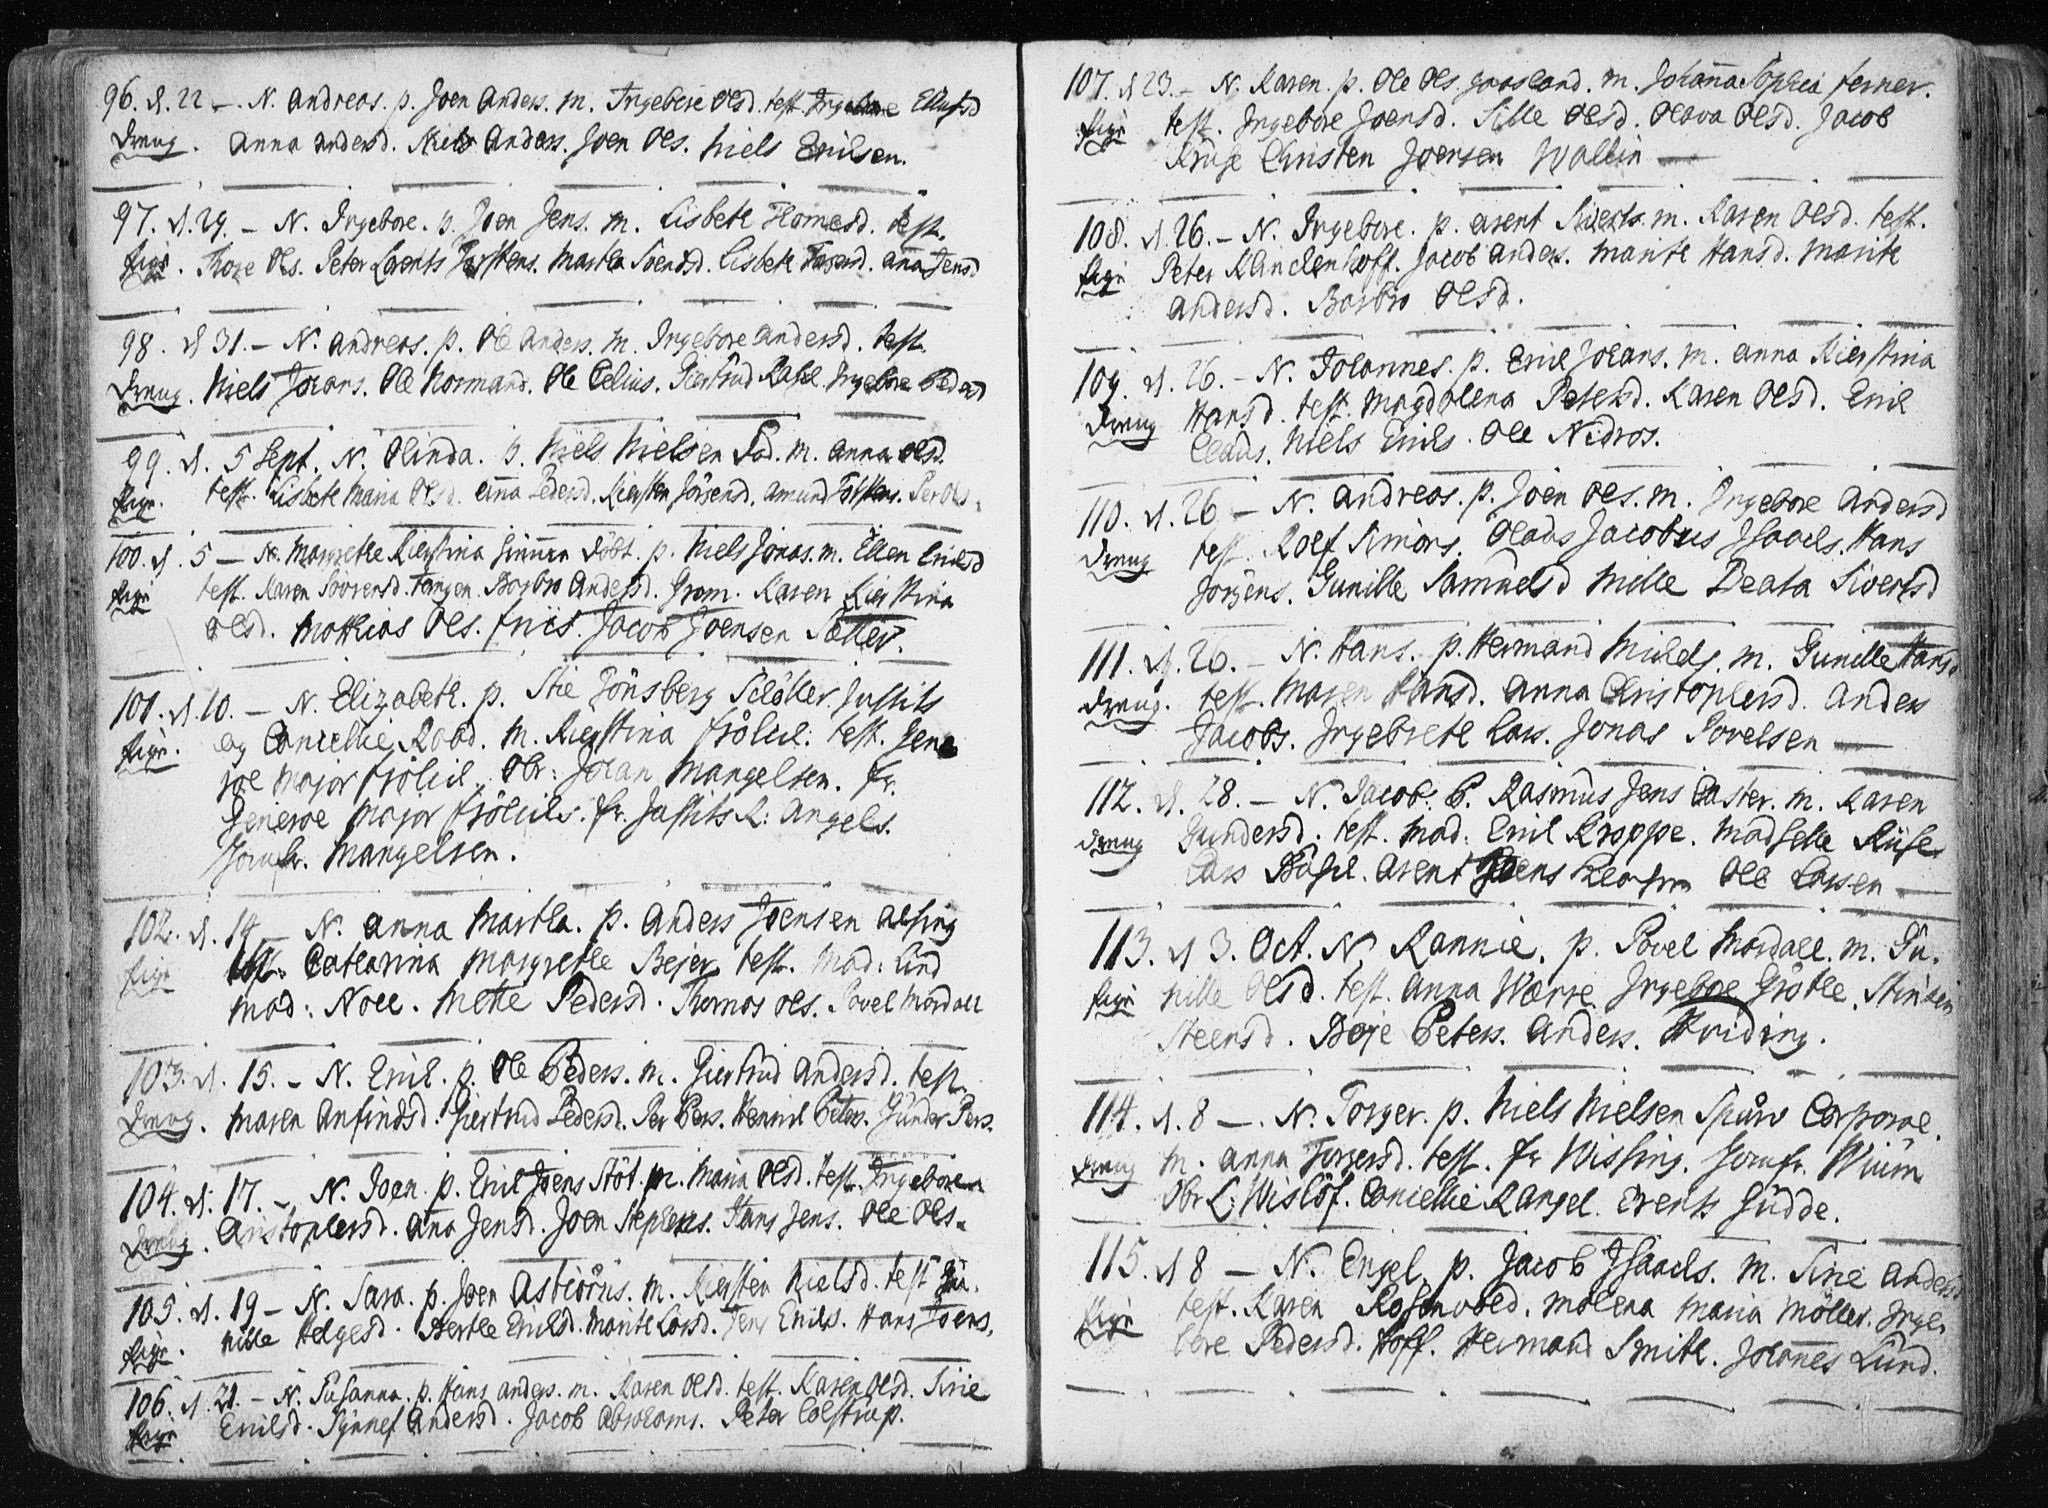 96. d. 22 – N. Andreas. p. Joen Anders. m. Ingebore Olsd. test. Ingebore Ellefsd
Dreng. Anna Andersd. Niels Anders. Joen Ols. Niels Erichsen.
97. d. 29. – N. Ingebore. p. Joen Jens. m. Lisbeth Thomesd. test.
Pige. Thore Ols. Peter Lorents Torstens. Martha Svendsd. Lisbeth. Anna Jensd
98. d 31. – N. Andreas. p. Ole Anders. m. Ingebore Andersd. test.
Dreng. Niels Johans. Ole Normand. Ole Celius. Giertrud Rasch. Ingebore Pedersd
99. d. 5 Sept. N. Olinda. p. Niels Nielsen Sod. m. Anna Olsd.
Pige. test. Lisbeth Maria Olsd. Anna Pedersd. Kiersten Jörgensd. Amund Torstens. Per Ols.
100. d. 5 – N. Margrethe Kierstina hiemme döbt. p. Niels Jonas. m. Ellen Erichsd
Pige test. Karen Sörensd. Tangen. Barbro Andersd. Grom. Karen Kierstina
Olsd. Mathias Ols. Friis. Jacob Joensen Sætter.
101. d. 10. – N. Elizabeth. p. Stie Tönsberg Schöller Justits
Pige. og Cancellie Raad. m. Kierstina Frölich. test. Gene
ral Major Frölich. Obr: Johan Mangelsen. Fr.
General Major Frölichs. Fr. Justits R: Angels.
Jomfr. Mangelsen.
102. d. 14 – N. Anna Martha. p. Anders Joensen Alsing
Pige Catharina Margrethe Bejer. test. Mad: Lind
Mad: Noll. Mette Pedersd. Thomas Ols. Povel Mardall
103. d. 15. – N. Erich. p. Ole Peders. m. Giertrud Andersd. test.
Dreng. Maren Anfindsd. Giertrud Pedersd. Per Pers. Henrich Peters. Gunder Pers.
104. d. 17. – N. Joen. p. Erich Joens Stöt. m. Maria Olsd. test. Ingebore
Dreng. Christophersd. Ana Jensd. Joen Stephens. Hans Jens. Ole Ols.
105. d. 19 – N. Sara. p. Joen Astiörns. m. Kiersten Nielsd. test Gu-
Pige. nille Helgesd. Berthe Erichsd. Marite Larsd. Jens Erichs. Hans Joens.
106. d. 21. – N. Susanna. p. Hans Anders. m. Karen Olsd. test. Karen Olsd. Sirie
Pige Erichsd. Synnef Andersd. Jacob Abrahams. Peter Colstrup.
107. d 23. – N. Karen. p. Ole Ols. Jaasland. m. Johanna Sophia Ferner.
Pige test. Ingebore Joensd. Sille Olsd. Olava Olsd. Jacob
Kruse Christen Joensen Wollin –
108. d. 26. – N. Ingebore. p. Arent Siverts. m. Karen Olsd. test.
Pige Peter Klinckenhoff. Jacob Anders. Marite Hansd. Marite
Andersd. Barbro Olsd.
109. d. 26. – N. Johannes. p. Erich Johans. m. Anna Kierstina
Dreng Hansd. test. Magdalena Petersd. Karen Olsd. Erich
Claus. Niels Erichs. Ole Nidros.
110. d. 26 – N. Andreas. p. Joen Ols. m. Ingebore Andersd
Dreng test. Rolf Simons. Olaus Jacobus Isaachs. Hans
Jörgens. Gunille Samuelsd Mille Beata Sivertsd
111. d. 26. – N. Hans. p. Hermand Michels. m. Gunille Hansd
Dreng. test. Maren Hansd. Anna Christophersd. Anders
Jacobs. Ingebreth Lars. Jonas Povelsen –
112. d. 28. – N. Jacob. p. Rasmus Jens Caster. m. Karen
Dreng Gundersd. test. Mad: Erich Kroppe. Madselle Riise
Lars Busch. Arent Joens Ole Larsen –
113. d 3. Oct. N. Rannie. p. Povel Mardall. m. Gu-
Pige nille Olsd. test. Anna Wærre. Ingeboe Gröthe. Stinchen
Steensd. Boje Peters. Anders. Hviding.
114. d. 8 –. N. Torger. p. Niels Nielsen Spurv Corporal.
Dreng m. Anna Torgersd. test. Fr Wissing. Jomfr. Wium
Obr L: Wislöf. Cancellie R Angel. Erents Gudde.
115. d 8 – N. Engel. p. Jacob Isaachs. m. Sirie Andersd
Pige test. Karen Rosenvold. Malena Maria Möller. Inge-
bore Pedersd. Hoff. Hermand Smith. Johannes Lund.